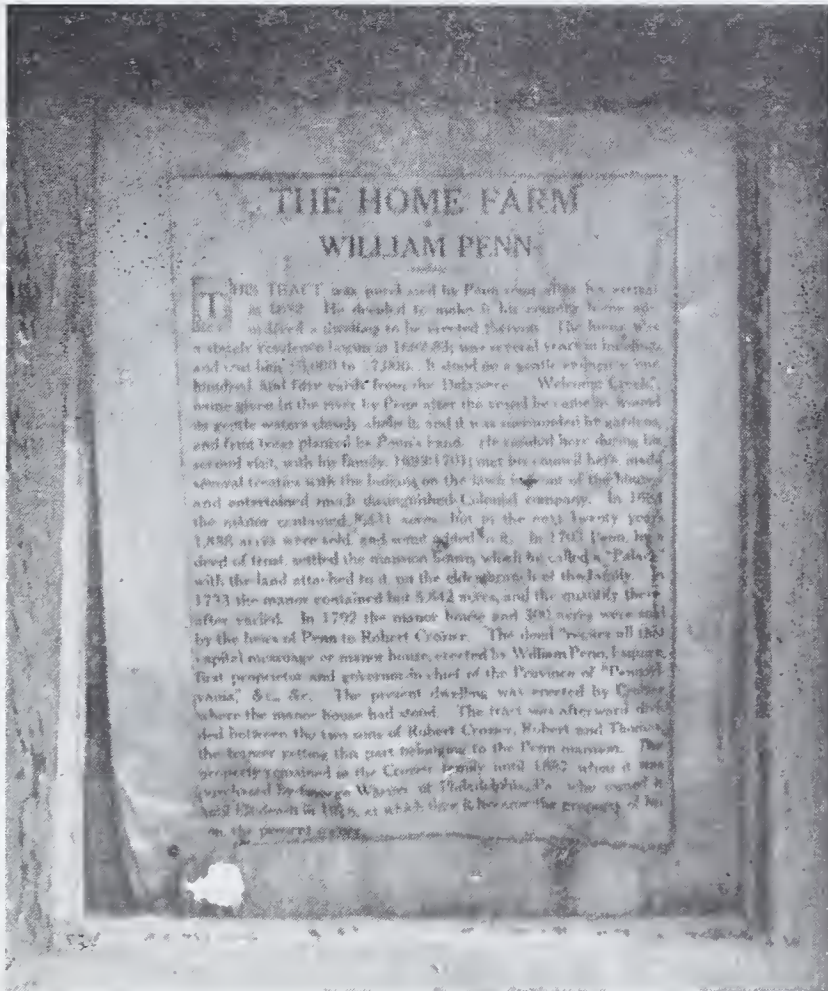 THE HOME FARM
WILLIAM PENN
THIS TRACT was purchased by Penn soon after his arrival
in 1682. He decided to make it his country home and
ordered a dwelling to be erected thereon. The house was
a stately residence begun in 1682-83; was several years in building,
and cost him to £7,000. It stood on a gentle eminence one
hundred and four yards from the Delaware. "Welcome Creek",
name given to the river by Penn after the vessel he came in, wound
its gentle waters closely about it, and it was surrounded by gardens,
and fruit trees planted by Penn's hand. He resided here during his
second visit, with his family, 1699-1701; met his council here, made
several treaties with the Indians on the lawn in front of the house
and entertained much distinguished Colonial company. In
the manor contained 8,431 acres, but in the next twenty years
1,888 acres were sold, and some added to it. In Penn, by a
deed of trust, settled the mansion house, which he called a "Palace"
with the land attached to it, on the elder branch of the family. In
1733 the manor contained but 5,842 acres, and the quantity there-
after varied. In 1792 the manor house and 300 acres were sold
by the heirs of Penn to Robert Crozier. The deed "recites all this
capital messuage or manor house, erected by William Penn, Esquire,
first proprietor and governor-in-chief of the Province of "Pennsyl-
vania," &c., &c. The present dwelling was erected by Crozier
where the manor house had stood. The tract was afterward divi-
ded between the two sons of Robert Crozier, Robert and Thomas,
the former getting this part belonging to the Penn mansion. The
property remained in the Crozier family until when it was
purchased by George Warner of Philadelphia, Pa. who owned it
until his death in at which time it became the property of his
son, the present owner.